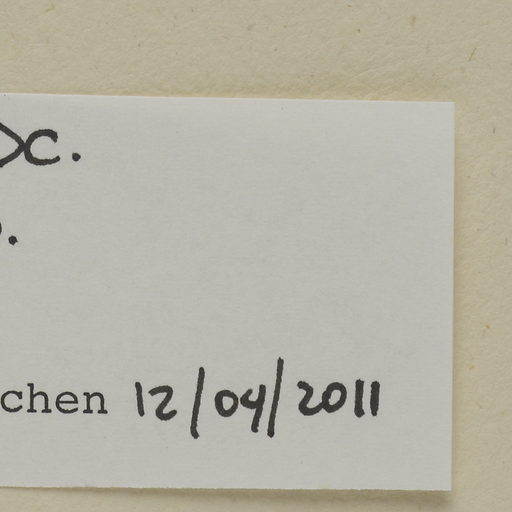 DC.
chen 12/04/2011